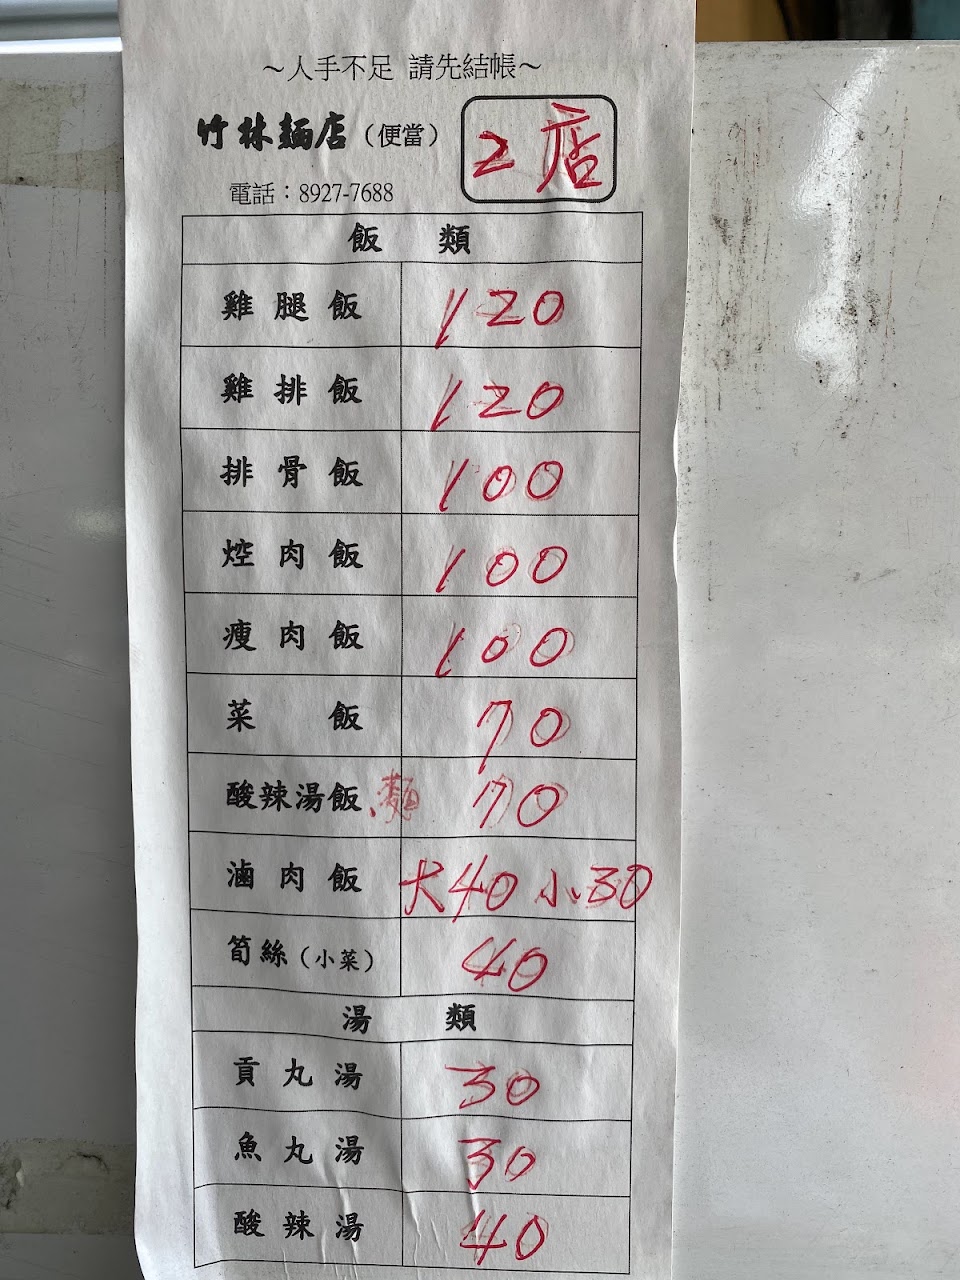 ～人手不足 請先結帳～
竹林麵店（便當） 2店
電話：8927-7688
飯 類
雞腿飯 120
雞排飯 120
排骨飯 100
焢肉飯 100
瘦肉飯 100
菜 飯 70
酸辣湯飯、麵 70
滷肉飯 大40 小30
筍絲（小菜） 40
湯 類
貢丸湯 30
魚丸湯 30
酸辣湯 40